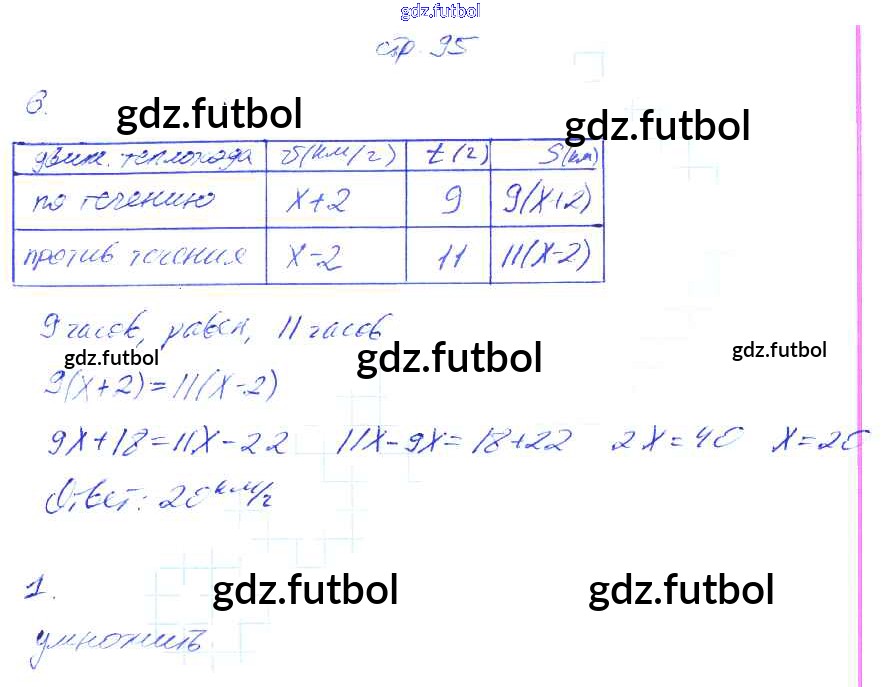 gdz.futbol
стр. 95
6.
gdz.futbol
gdz.futbol
движ. теплохода v(км/г) t(г) S(км)
по течению x+2 9 9(x+2)
против течения x-2 11 11(x-2)
9 часов, равен, 11 часов
gdz.futbol gdz.futbol gdz.futbol
9(x+2)=11(x-2)
9x+18=11x-22 11x-9x=18+22 2x=40 x=20
Ответ: 20 км/г
1. gdz.futbol gdz.futbol
умножить